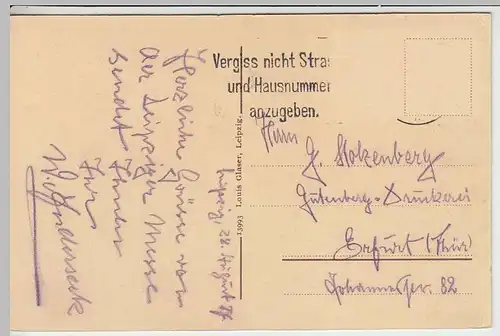 Vergiss nicht Stras
und Hausnummer
anzugeben.
Leipzig, 28. August
Herzliche Grüsse von
der Leipziger Messe
sendet Ihnen
Ihr
13993 Louis Glaser, Leipzig.
Herrn
G. Stolzenberg
Gutenberg-Druckerei
Erfurt (Thür)
82